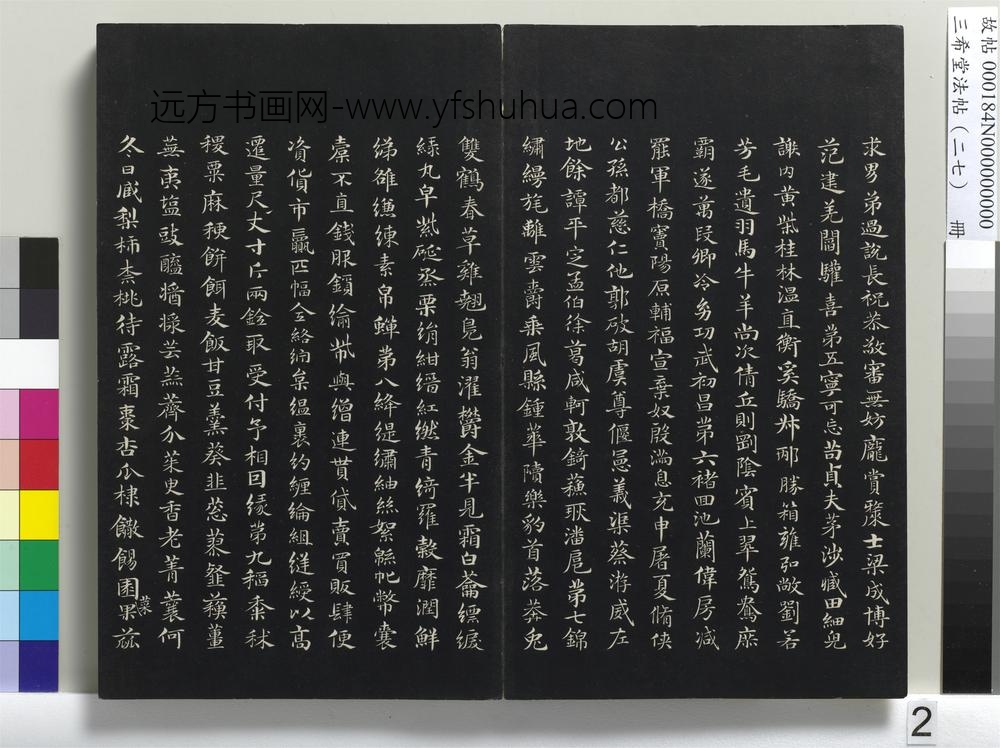 故帖000184N000000000
三希堂法帖(二七) 冊
远方书画网-www.yfshuhua.com
求男弟過說長祝恭敬審無妨龐賞贛士梁成博好
范建羌閻驩喜第五寧可忘苟貞夫茅涉臧田細兒
謝內黃柴桂林溫直衡奚驕叔邴勝箱雍弘敞劉若
芳毛遺羽馬牛羊尚次倩丘則劉陰賓上翠鴛鴦庶
霸遂萬段卿泠幼功武初昌第六褚回池蘭偉房減
罷軍橋竇陽原輔福宣棄奴殷滿息充申屠夏脩俠
公孫都慈仁他郭破胡虞尊偃憲義渠蔡游威左
地餘譚平定孟伯徐葛咸軻敦錡蘇耿潘扈第七錦
繡縵旄離雲爵乘風縣鍾華隤樂豹首落莽兔
雙鶴春草雞翹鳧翁濯鬱金半見霜白蘥縹綟
綠丸皁紫硟烝栗絹紺縉紅繎青綺羅縠靡潤鮮
綈雒縑練素帛蟬第八絳緹繡紬絲絮緜帊幣囊
橐不直錢服鎖緰帋與繒連貰貸賣買販肆便
資貨市贏匹幅全絡紵枲縕裹約纏綸組縫綬以高
遷量尺丈寸斤兩銓取受付予相因緣第九稻黍秫
稷粟麻稉餅餌麦飯甘豆羹葵韭葱蓼韰蘇薑
蕪荑塩豉醯醬漿芸蒜薺介茱臾香老菁蘘何
冬日咸梨柿柰桃待露霜棗杏瓜棣饊餳園菓果茲
2